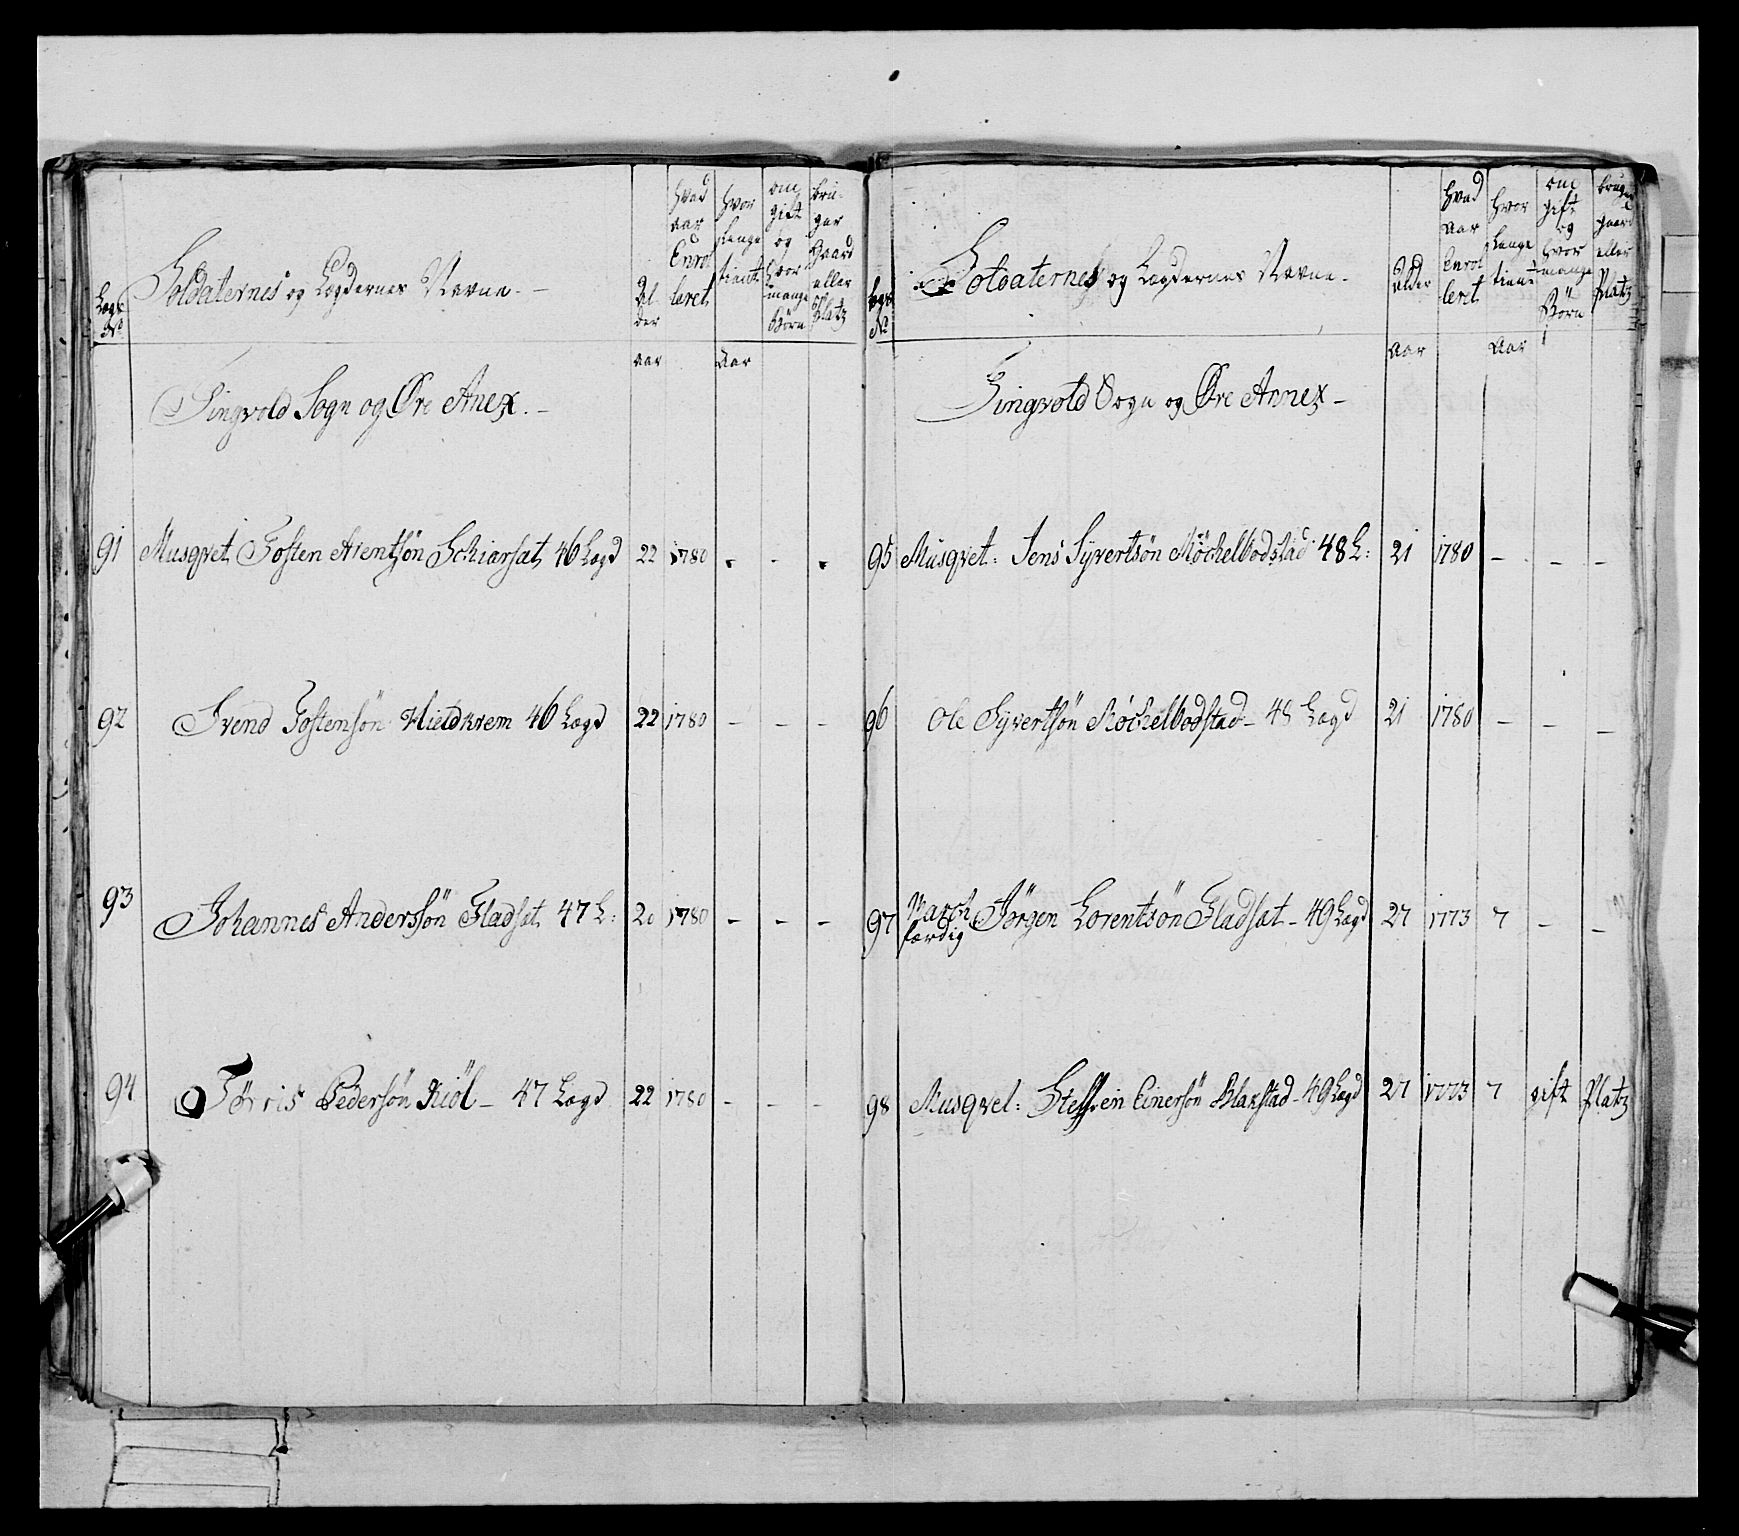 Legs No
Soldaternes og Lægdernes Navne. -
Al der
hvad aar Enrol leret
hvor længe tient
om gift og hvor mange Börn
bru- ger Gaard eller Platz
aar
Aar
Tingvold Sogn og Øre Anex. -
91 Musqvet. Tosten Arentsön Schiarsæt 46 Lægd 22 1780 - - -
92 Svend Tostensön Hieldkrem 46 Lægd 22 1780 - - -
93 Johannes Anderssön Fladsæt 47 L: 20 1780 - - -
94 Törris Pedersön Kiöl - 47 Lægd 22 1780 - - -
Legs No
Soldaternes og Lægdernes Navne -
alder
hvad aar Enrol leret
hvor længe tient
om gift og hvor mange Börn
bruger gaard eller Platz
Aar
Aar
Tingvold Sogn og Øre Annex -
95 Musqvet: Jens Syvertsön Möchelbodstad 48 L: 21 1780 - - -
96 Ole Syvertsön Möchelbodstad - 48 Lægd 21 1780 - - -
97 March færdig Jörgen Lorentsön Fladsæt - 49 Lægd 27 1773 7 - -
98 Musqvet: Steffen Einersön Blaxstad - 49 Lægd 27 1773 7 gift Platz